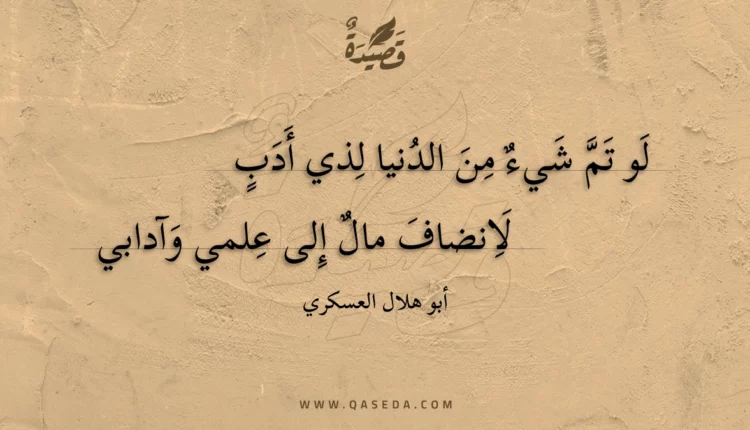 قَصِيْدَةٌ
لَو تَمَّ شَيءٌ مِنَ الدُنيا لِذي أَدَبٍ
لَاِنضافَ مالٌ إِلى عِلمي وَآدابي
أبو هلال العسكري
WWW.QASEDA.COM